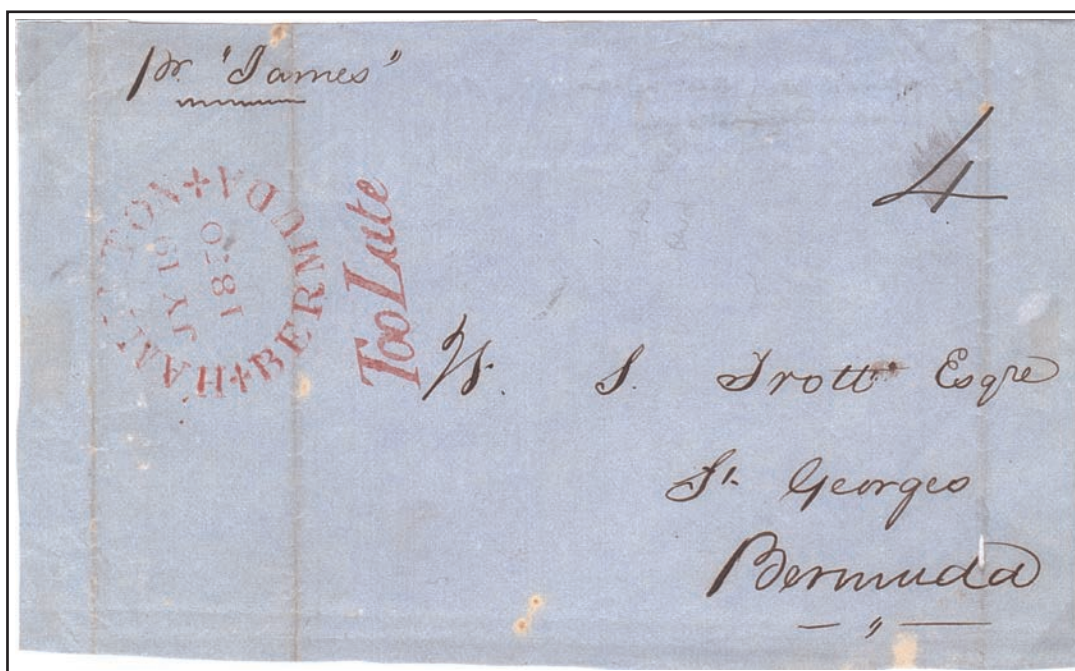 pr. "James"
4
HAMILTON BERMUDA
JY 19
1850
Too Late
W. S. Trott Esqre
St. Georges
Bermuda